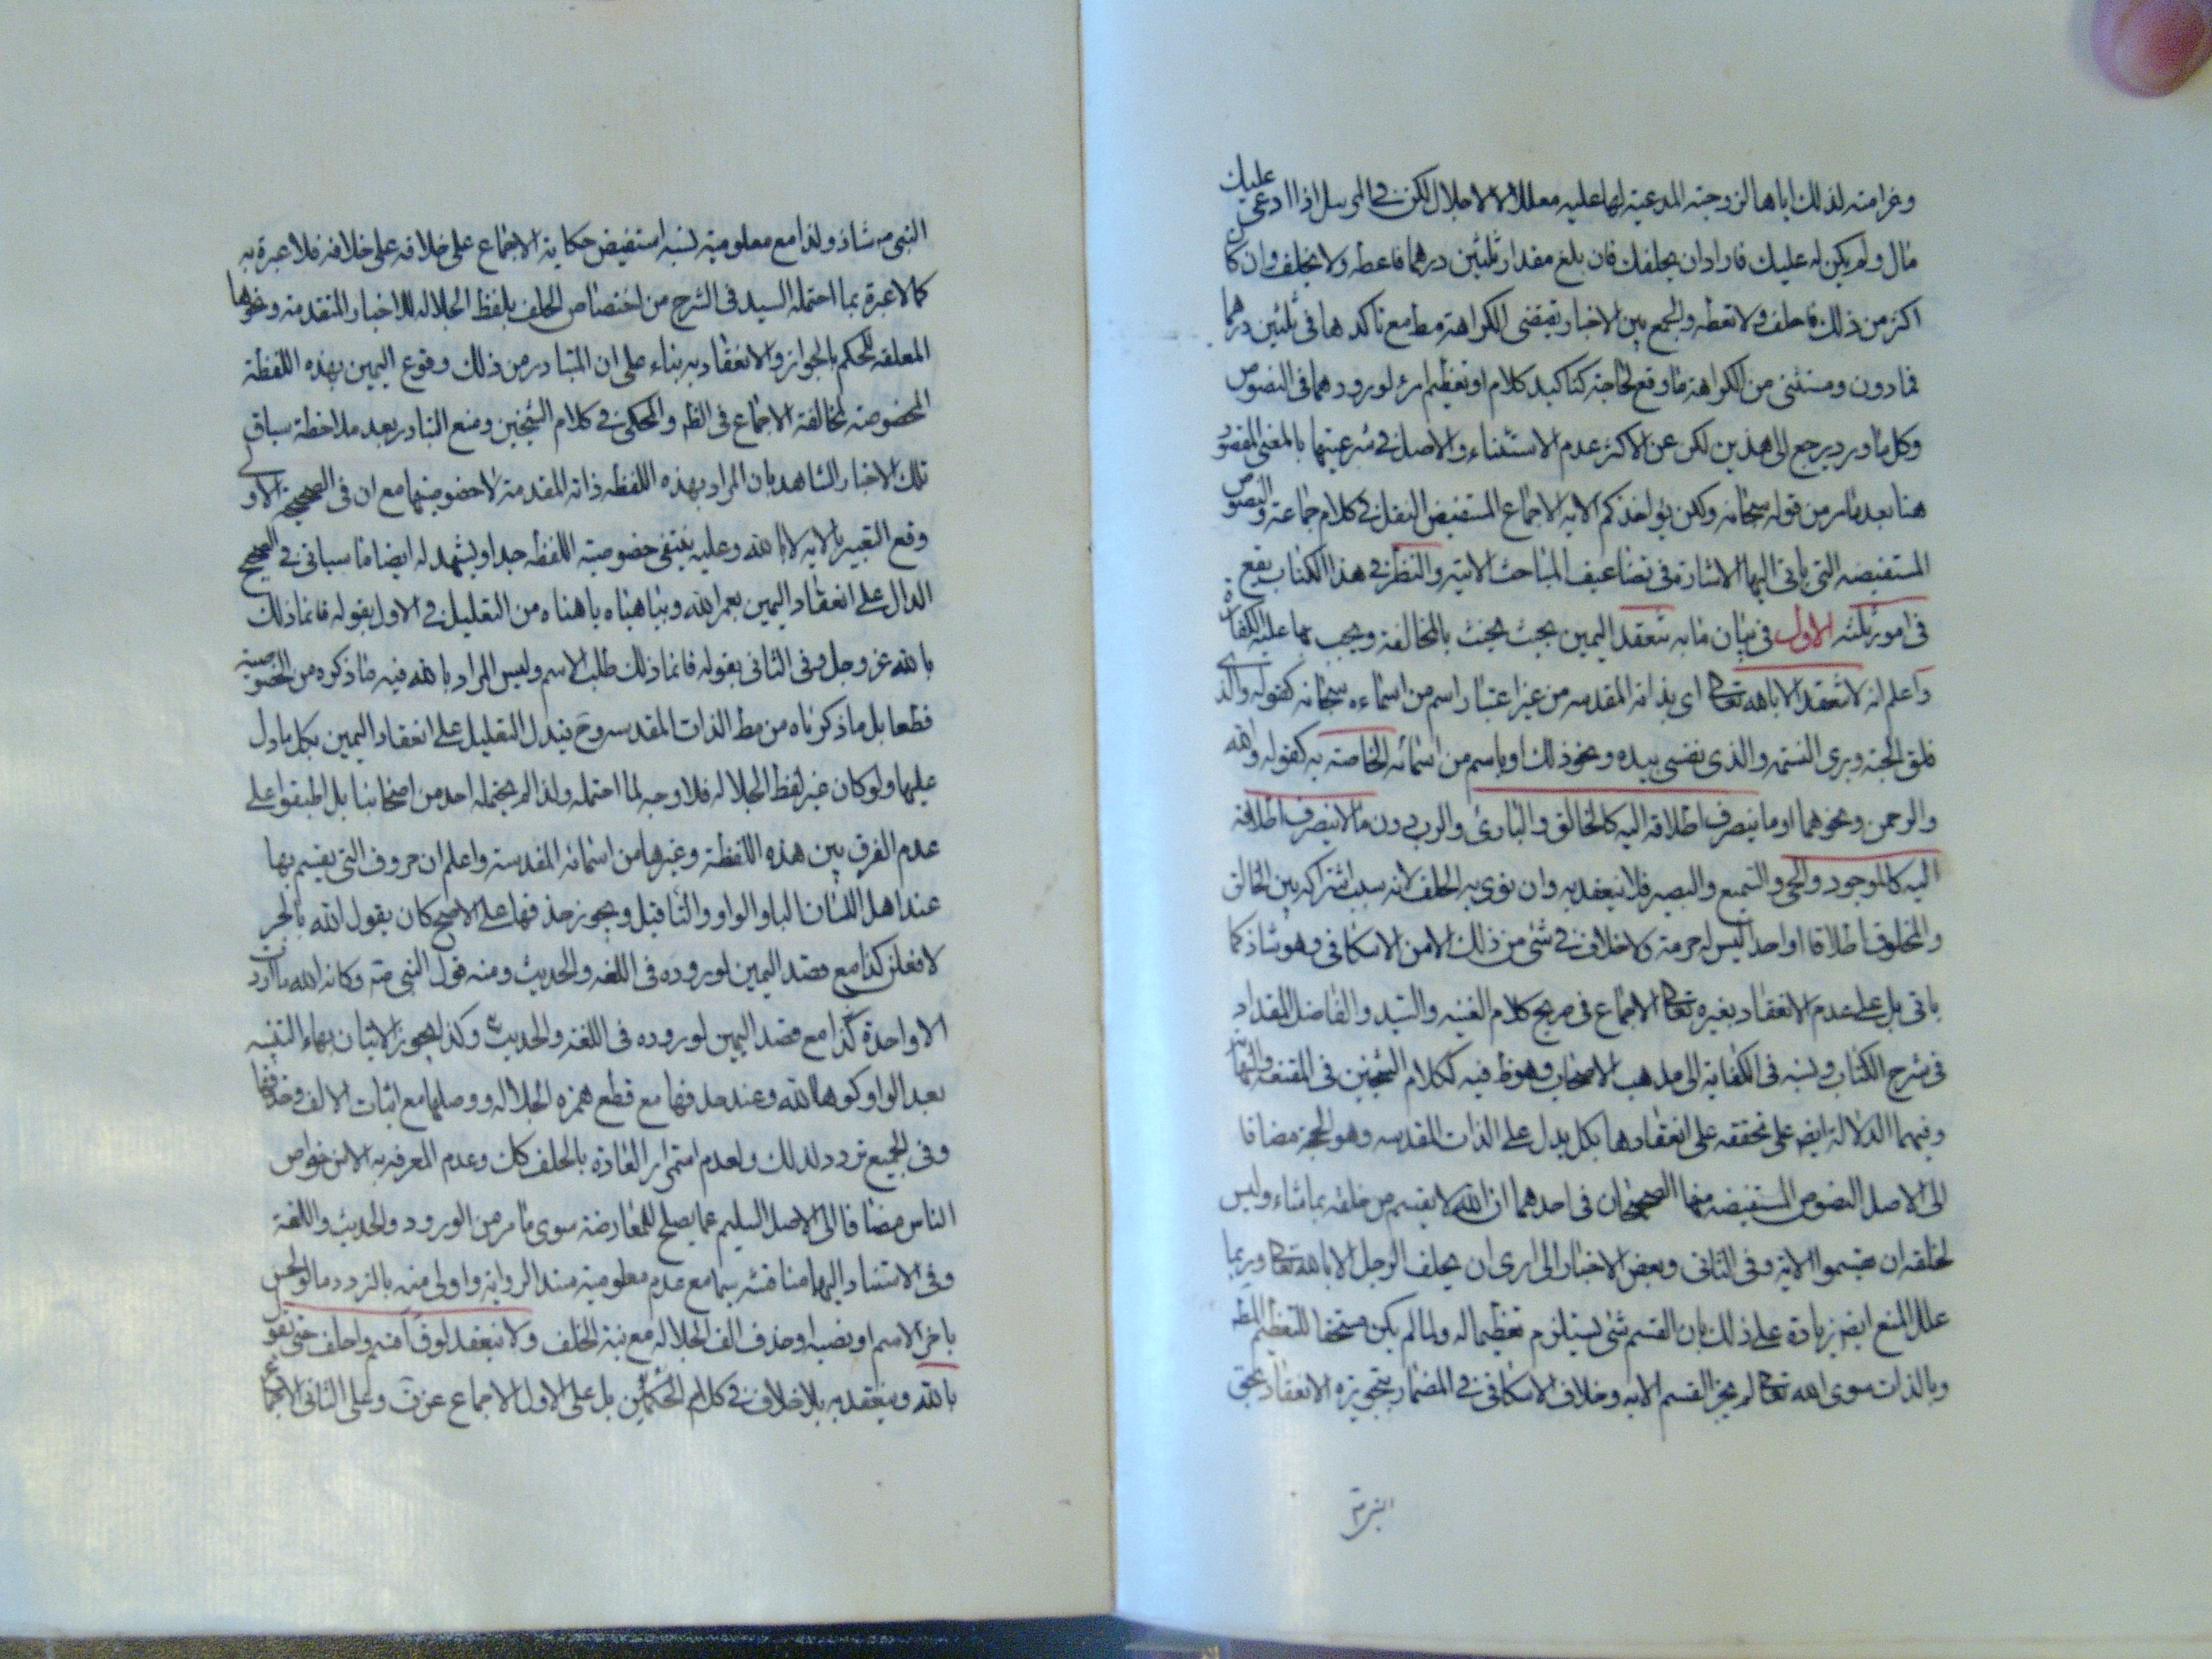 وغرامته لذلك اياها لزوجته المدعية لها عليه معللا الا لاجلال لكن في المرسل اذا ادعى عليك
مال ولم يكن له عليك فاراد ان يحلفك فان بلغ مقدار ثلثين درهما فاعطه ولا تحلف وان كان
اكثر من ذلك فاحلف ولا تعطه والجمع بين الاخبار يقتضى الكراهة مط مع تاكدها في ثلثين درهما
فمادون ومستثنى من الكراهة ما وقع لحاجة كتاكيد كلام او تعظيم امر لورودهما في النصوص
وكل ما ورد يرجع الى هذين لكن عن الاكثر عدم الاستثناء والاصل في شرعيتها بالمعنى المقصود
هنا بعد مامر من قوله سبحانه ولكن يؤاخذكم الايه الاجماع المستفيض النقل في كلام جماعة والنصوص
المستفيضه التى ياتى اليها الاشارة في تضاعيف المباحث الاتية والنظر في هذا الكتاب يقع
في امور ثلثه الاول في بيان ما به تنعقد اليمين بحيث يحنث بالمخالفة ويجب بها عليه الكفارة
واعلم انه لا تنعقد الا بالله تعالى اى بذاته المقدسه من غير اعتبار اسم من اسماءه سبحانه كقوله والذى
فلق الحبة وبرى النسمه والذى نفسى بيده ونحو ذلك او باسم من اسمائه الخاصة به كقوله والله
والرحمن ونحوهما او ما ينصرف اطلاقه اليه كالخالق والبارئ والرب دون ما لا ينصرف اطلاقه
اليه كالموجود والحى والسميع والبصير فلا ينعقد به وان نوى به الحلف لانه بسبب اشتراكه بين الخالق
والمخلوق اطلاقا واحدا ليس له حرمة ولا خلاف في شئ من ذلك الا من الاسكافى وهو شاذ كما
ياتى بل على عدم الانعقاد بغيره تعالى الاجماع في صريح كلام الغنيه والسيد والفاضل المقداد
في شرح الكتاب ونسبه في الكفاية الى مذهب الاصحاب وهو ظ فيه ككلام الشيخين في المقنعة والنهاية
وفيهما الدلالة ايض على تحققه على انعقادها بكل يدل على الذات المقدسه وهو الحجة مضافا
الى الاصل النصوص المستفيضه منها الصحيحان في احدهما ان لله لا يقسم من خلقه بما شاء وليس
لخلقه ان يقسموا الا به وفى الثانى وبعض الاخبار لا ارى ان يحلف الرجل الا بالله تعالى وربما
علل المنع ايض زيادة على ذلك بان القسم شئ يستلزم تعظيما له ولما لم يكن مستحقا للتعظيم المط
وبالذات سوى الله تعالى لم يجز القسم الا به وخلاف الاسكافى في المضمار بتجويزه الانعقاد بحق
النبى ص
النبى ص شاذ ولذا مع معلومية نسبه استفيض حكاية الاجماع على خلافه على خلافه فلا عبرة به
كما لا عبرة بما احتمله السيد في الشرح من اختصاص الحلف بلفظ الجلاله للاخبار المتقدمة ونحوها
المعلقه للحكم بالجواز والانعقاد به بناء على ان المتبادر من ذلك وقوع اليمين بهذه اللفظة
المخصوصة لمخالفة الاجماع في الظ والمحكى في كلام الشيخين ومنع التبادر بعد ملاحظة سياق
تلك الاخبار الشاهد بان المراد بهذه اللفظه ذاته المقدسة لا خصوصيتها مع ان في الصحيحة الاولى
وقع التعبير بالا به لا بالله وعليه ينتفى خصوصية اللفظه جدا ويشهد له ايضا ما سياتى في الصحيح
الدال على انعقاد اليمين بعمر الله وبيا هناه يا هناه من التعليل في الاول بقوله فانما ذلك
بالله عز وجل وفى الثانى بقوله فانما ذلك طلب الاسم وليس المراد بالله فيه ما ذكره من الخصوصية
قطعا بل ما ذكرناه من مط الذات المقدسه وح فيدل التعليل على انعقاد اليمين بكل ما دل
عليها ولو كان غير لفظ الجلاله فلا وجه لما احتمله ولذا لم يحتمله احد من اصحابنا بل اطبقوا على
عدم الفرق بين هذه اللفظة وغيرها من اسمائه المقدسة واعلم ان حروف التى يقسم بها
عند اهل اللسان البا والواو والتا قيل ويجوز حذفها على الاصح كان يقول الله بالجر
لافعلن كذا مع قصد اليمين لوروده في اللغه والحديث ومنه قول النبى ص وكانه الله ما اردت
الا واحدة كذا مع قصد اليمين لوروده في اللغة والحديث وكذا يجوز الاتيان بهاء التنبيه
بعد الواو كوها الله وعند حذفها مع قطع همزه الجلاله ووصلها مع اثبات الالف وحذفها
وفى الجميع تردد لذلك ولعدم استمرار العادة بالحلف كك وعدم المعرفه به الا من خواص
الناس مضافا الى الاصل السليم عما يصلح للمعارضة سوى ما مر من الورود والحديث واللغة
وفى الاستناد اليها مناقشه سيما مع عدم معلومية سند الرواية واولى منه بالتردد ما لو لحن
باخر الاسم او نصبه او حذف الف الجلاله مع نية الحلف ولا تنعقد لو ق اقسم واحلف حتى يقول
بالله وينعقد به بلا خلاف في كلام الحكمين بل على الاول الاجماع عن ف وعلى الثانى الاجماع